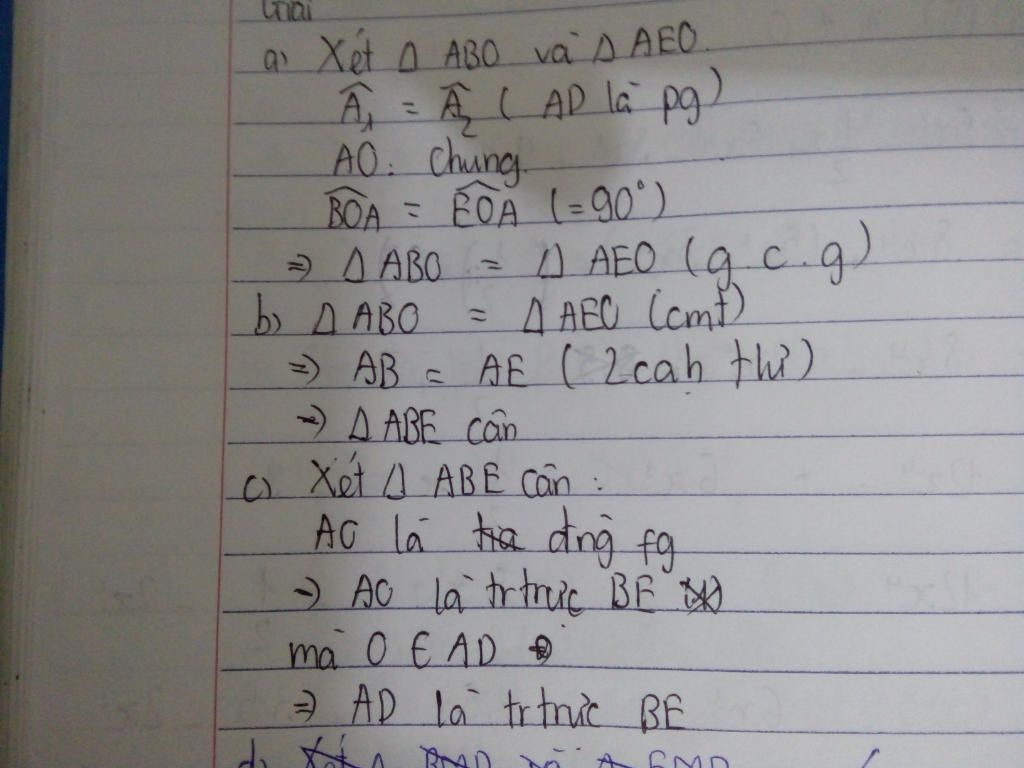 Giải
a) Xét Δ ABO và Δ AEO.
Â₁ = Â₂ ( AD là pg )
AO: chung.
BÔA = EÔA (=90°)
⇒ Δ ABO = Δ AEO ( g c . g )
b) Δ ABO = Δ AEO (cmt)
⇒ AB = AE ( 2 cah từ )
⇒ Δ ABE cân
c) Xét Δ ABE cân :
AO là đng fg
⇒ AO là tr trực BE
mà O ∈ AD
⇒ AD là tr trực BE